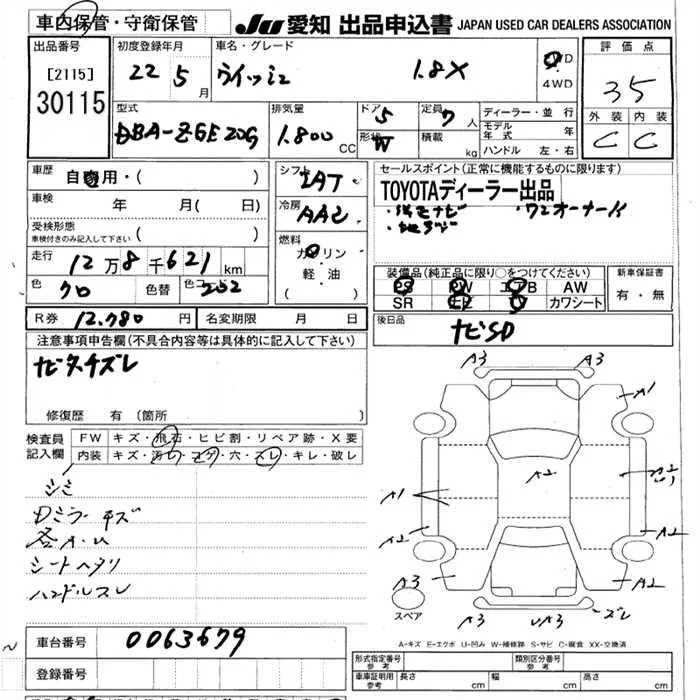 車内保管・守衛保管 JU 愛知 出品申込書 JAPAN USED CAR DEALERS ASSOCIATION
出品番号 初度登録年月 車名・グレード 評価点
[2115] 22 5月 ウイッシュ 1.8X WD 35
30115 4WD
型式 排気量 ドア 5 定員 7人 ディーラー・並行 外装 内装
DBA-ZGE20G 1.800 CC 形状 W 積載 kg モデル年式 年 C C
ハンドル 左・右
車歴 自家用・( ) シフト IAT セールスポイント(正常に機能するものに限ります)
車検 年 月( 日) 冷房 AAC TOYOTAディーラー出品
受検形態 ・純正ナビ ・ワンオーナー
車検付きのみ記入して下さい ( ) ・地デジ
走行 12万8千621km 燃料 ガソリン
軽・油
( )
色 クロ 色替 色コード 202
装備品(純正品に限り○をつけてください) 新車保証書
PS PW エアB AW 有・無
SR カワシート
R券 12.780円 名変期限 月 日 後日品
ナビSD
注意事項申告欄(不具合内容等は具体的に記入して下さい)
修復歴 有 (箇所 )
検査員記入欄 FW キズ・飛石・ヒビ割・リペア跡・X要
内装 キズ・汚レ・コゲ・穴・スレ・キレ・破レ
シミ
Dミラーキズ
シートヘタリ
ハンドルスレ
A3 A3
A1
A2
A1
A2 A2
A3 A2
スペア A3 A3 ズレ
A-キズ E-エクボ U-凹み W-補修跡 S-サビ C-腐食 XX-交換済
車台番号 0063679
登録番号
形式指定番号 参考 類別区分番号 参考
車庫証明用 参考 長さ cm 幅 cm 高さ cm